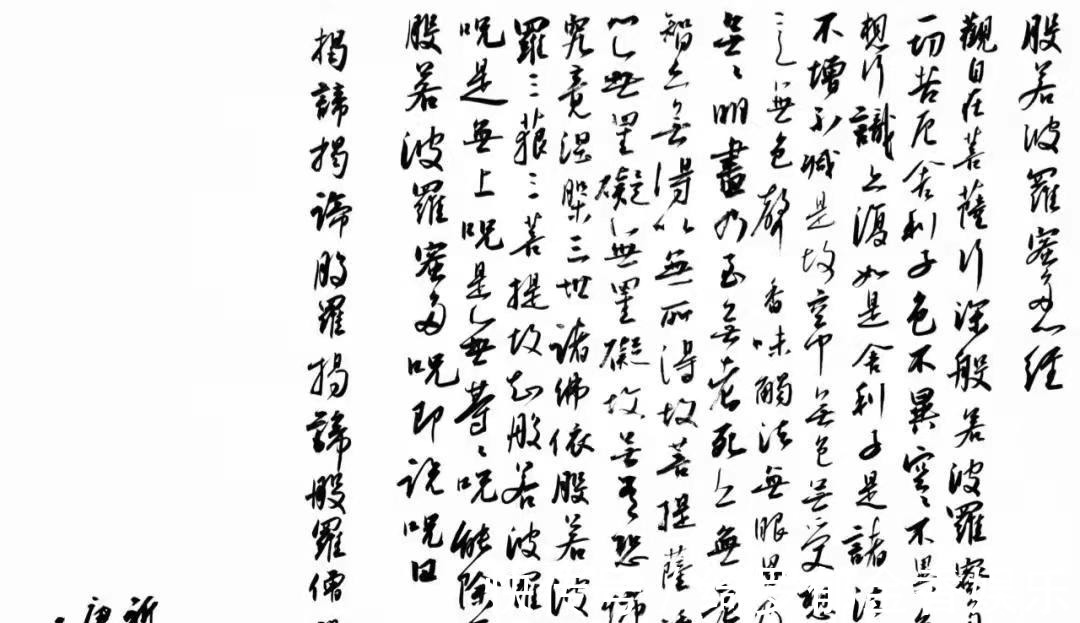 般若波羅蜜多心經
觀自在菩薩行深般若波羅蜜多
一切苦厄舍利子色不異空空不異色
想行識亦復如是舍利子是諸法
不增不減是故空中無色無受想
意無色聲香味觸法無眼界
無無明盡乃至無老死亦無老
智亦無得以無所得故菩提薩
心無罣礙無罣礙故無有恐怖
究竟涅槃三世諸佛依般若波
羅三藐三菩提故知般若波羅
咒是無上咒是無等等咒能除一
般若波羅蜜多咒即說咒曰
揭諦揭諦般羅揭諦般羅僧